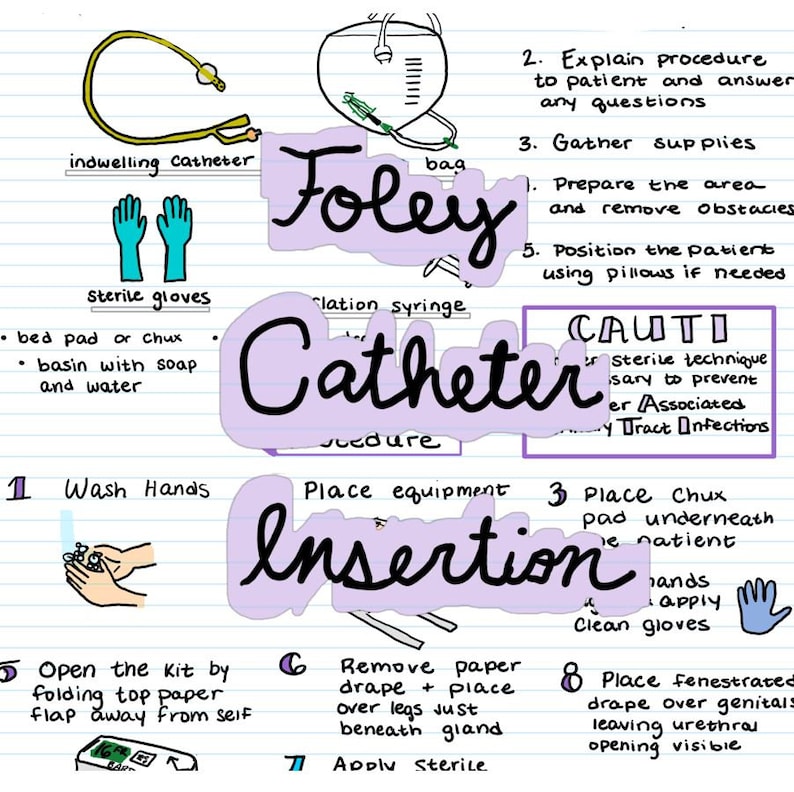 indwelling catheter
bag
2. Explain procedure
to patient and answer
any questions
3. Gather supplies
Prepare the area
and remove obstacles
5. Position the patient
using pillows if needed
Foley
sterile gloves
syringe
• bed pad or chux
• basin with soap
and water
Catheter
CAUTI
sterile technique
to prevent
Associated
Tract Infections
1 Wash Hands
Place equipment
3 Place Chux
pad underneath
patient
Insertion
hands
apply
Clean gloves
5 Open the kit by
folding top paper
flap away from self
16 FR
BARD
6 Remove paper
drape + place
over legs just
beneath gland
7 Apply sterile
8 Place fenestrated
drape over genitals
leaving urethral
opening visible